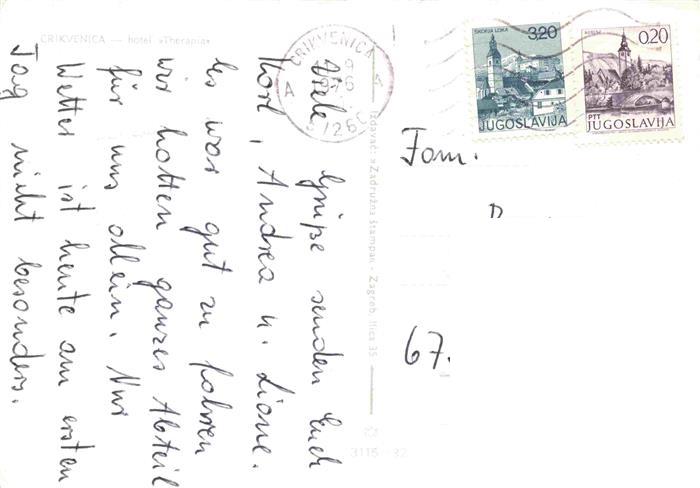 CRIKVENICA — hotel »Therapia«
Viele Grüße senden Euch
Karl, Andrea u. Liane.
Es war gut zu fahren
wir hatten ganzes Abteil
für uns allein. Nur
Wetter ist heute am ersten
Tag nicht besonders.
Izdavač: »Zadružna štampa« - Zagreb, Ilica 35
3115
CRIKVENICA
9
1976
A A
51260
ŠKOFJA LOKA
3.20
JUGOSLAVIJA
0.20
PTT
JUGOSLAVIJA
Fam.
67.